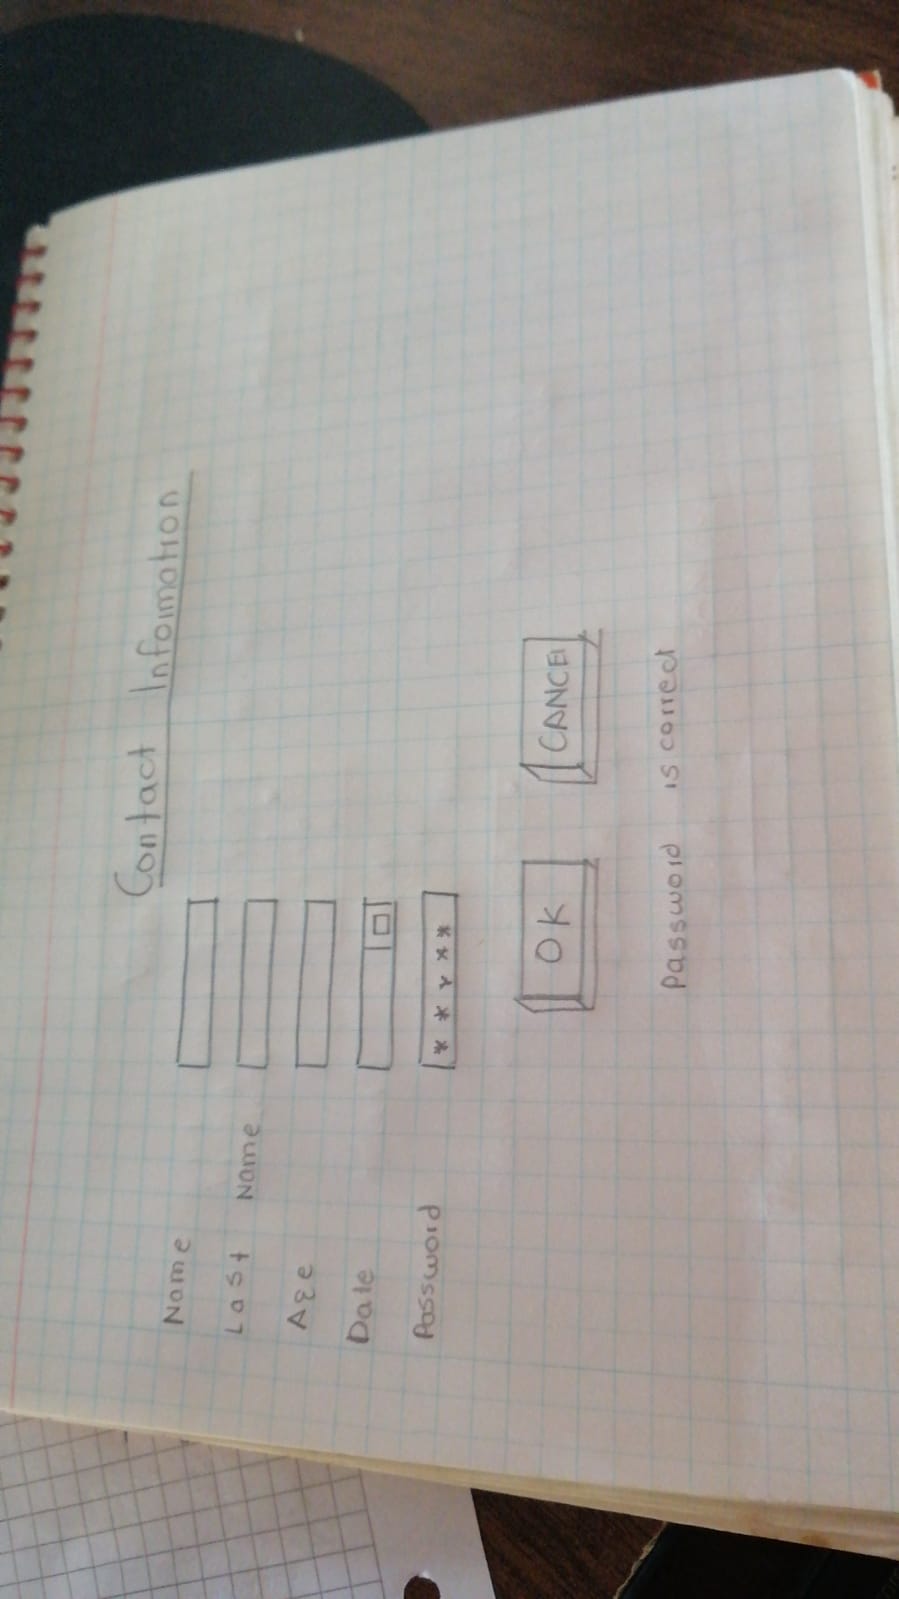 Contact Information
Name
Last Name
Age
Date
Password * * * * *
OK CANCEL
Password is correct